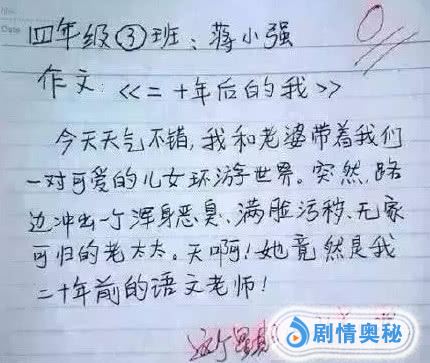 Date
四年级③班：蒋小强
0
作文：《二十年后的我》
今天天气不错，我和老婆带着我们
一对可爱的儿女环游世界。突然，路
边冲出一个浑身恶臭、满脸污秽、无家
可归的老太太。天啊！她竟然是我
二十年前的语文老师！
剧情奥秘